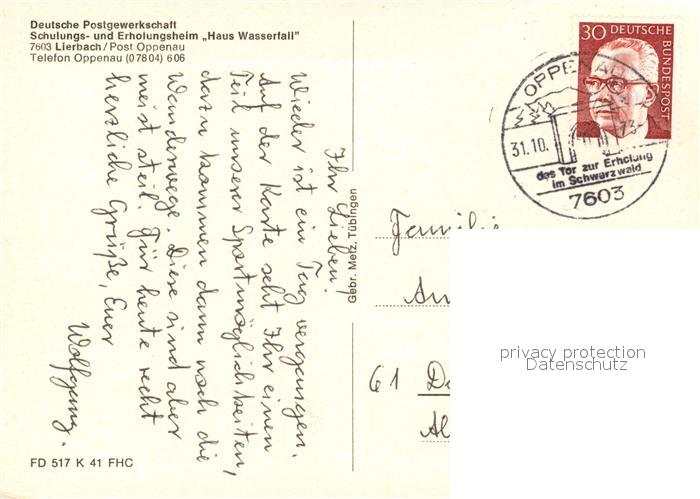 Deutsche Postgewerkschaft
Schulungs- und Erholungsheim „Haus Wasserfall"
7603 Lierbach/Post Oppenau
Telefon Oppenau (07804) 606
Ihr Lieben!
Wieder ist ein Tag vergangen.
Auf der Karte seht Ihr einen
Teil unserer Sportmöglichkeiten,
dazu kommen dann noch die
Wanderwege. Diese sind aber
meist steil. Für heute recht
herzliche Grüße, Euer
Wolfgang.
FD 517 K 41 FHC
Gebr. Metz, Tübingen
30 DEUTSCHE BUNDESPOST
OPPENAU
31.10. 73
das Tor zur Erholung
im Schwarzwald
7603
Familie
61
privacy protection
Datenschutz